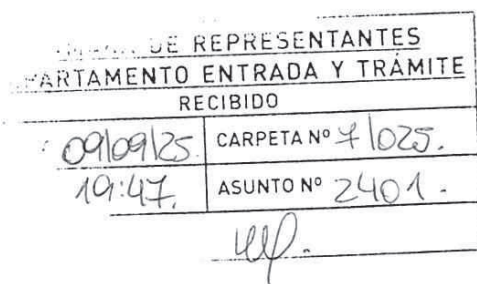 DE REPRESENTANTES
DEPARTAMENTO ENTRADA Y TRÁMITE
RECIBIDO
09/09/25. CARPETA Nº 7/025.
19:47. ASUNTO Nº 2401.